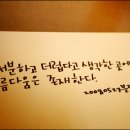 분하고 더럽다고 생각한 곳에
름다움은 존재한다.
20080523